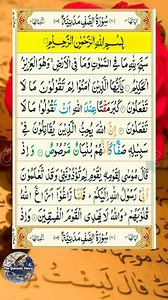 سُوْرَةُ الصَّفِّ مَدَنِيَّةٌ
بِسْمِ اللّٰهِ الرَّحْمٰنِ الرَّحِيْمِ
سَبَّحَ لِلّٰهِ مَا فِي السَّمٰوٰتِ وَمَا فِي الْاَرْضِ وَهُوَ الْعَزِيْزُ
الْحَكِيْمُ يٰۤاَيُّهَا الَّذِيْنَ اٰمَنُوْا لِمَ تَقُوْلُوْنَ مَا لَا
تَفْعَلُوْنَ كَبُرَ مَقْتًا عِنْدَ اللّٰهِ اَنْ تَقُوْلُوْا مَا لَا
تَفْعَلُوْنَ اِنَّ اللّٰهَ يُحِبُّ الَّذِيْنَ يُقَاتِلُوْنَ فِيْ
سَبِيْلِهٖ صَفًّا كَاَنَّهُمْ بُنْيَانٌ مَّرْصُوْصٌ وَاِذْ
قَالَ مُوْسٰى لِقَوْمِهٖ يٰقَوْمِ لِمَ تُؤْذُوْنَنِيْ وَقَدْ تَّعْلَمُوْنَ
اَنِّيْ رَسُوْلُ اللّٰهِ اِلَيْكُمْ فَلَمَّا زَاغُوْۤا اَزَاغَ اللّٰهُ
قُلُوْبَهُمْ وَاللّٰهُ لَا يَهْدِي الْقَوْمَ الْفٰسِقِيْنَ وَاِذْ
سُوْرَةُ الصَّفِّ مَدَنِيَّةٌ